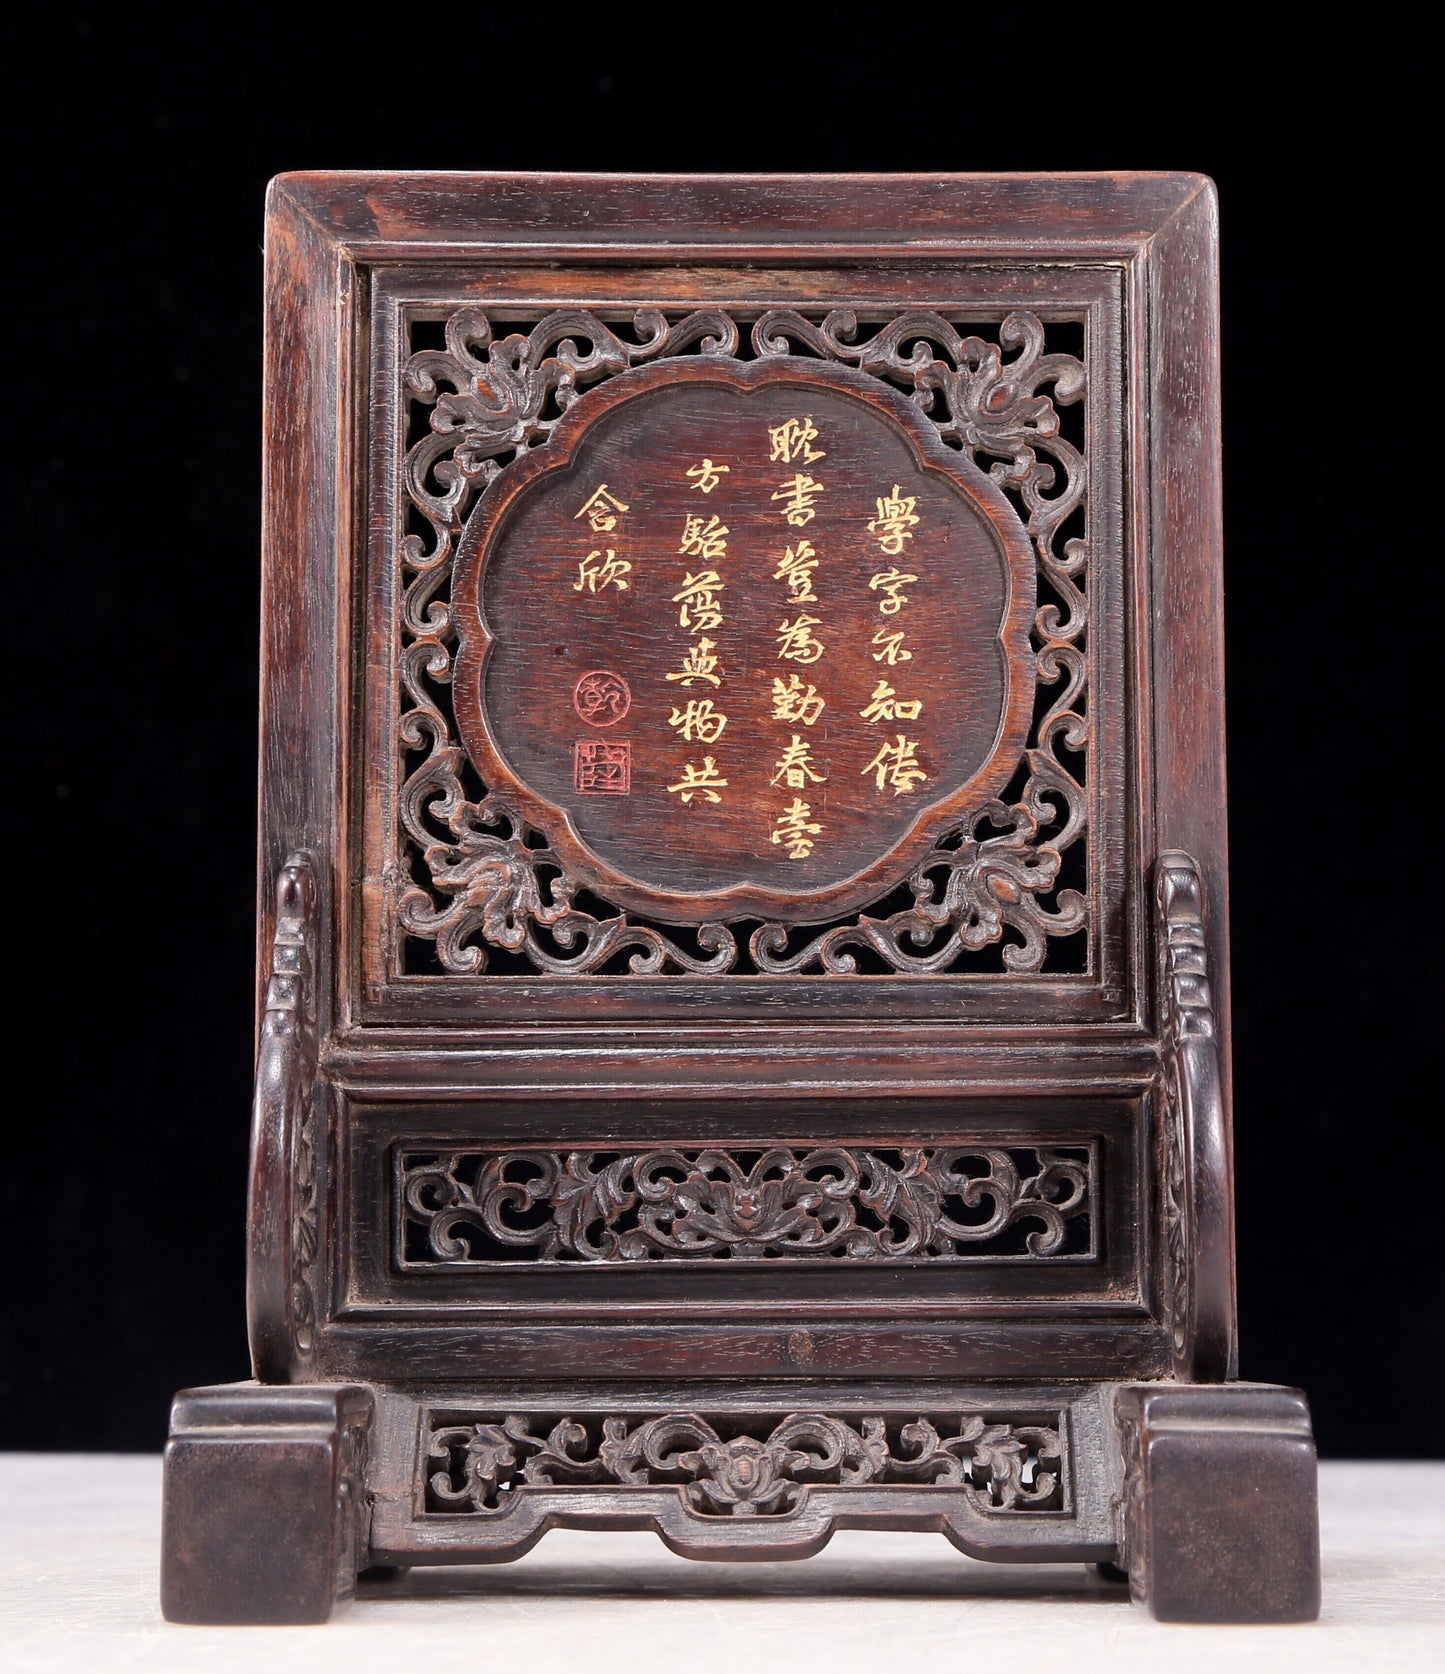 學字不知倦
耽書豈為勤春臺
方駘蕩與物共
含欣
乾
隆